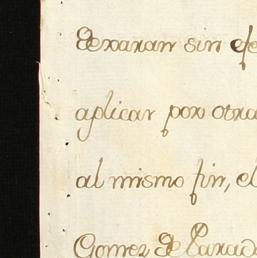 Dexaran sin efe
aplicar por otra
al mismo fin, el
Gomez de Parada